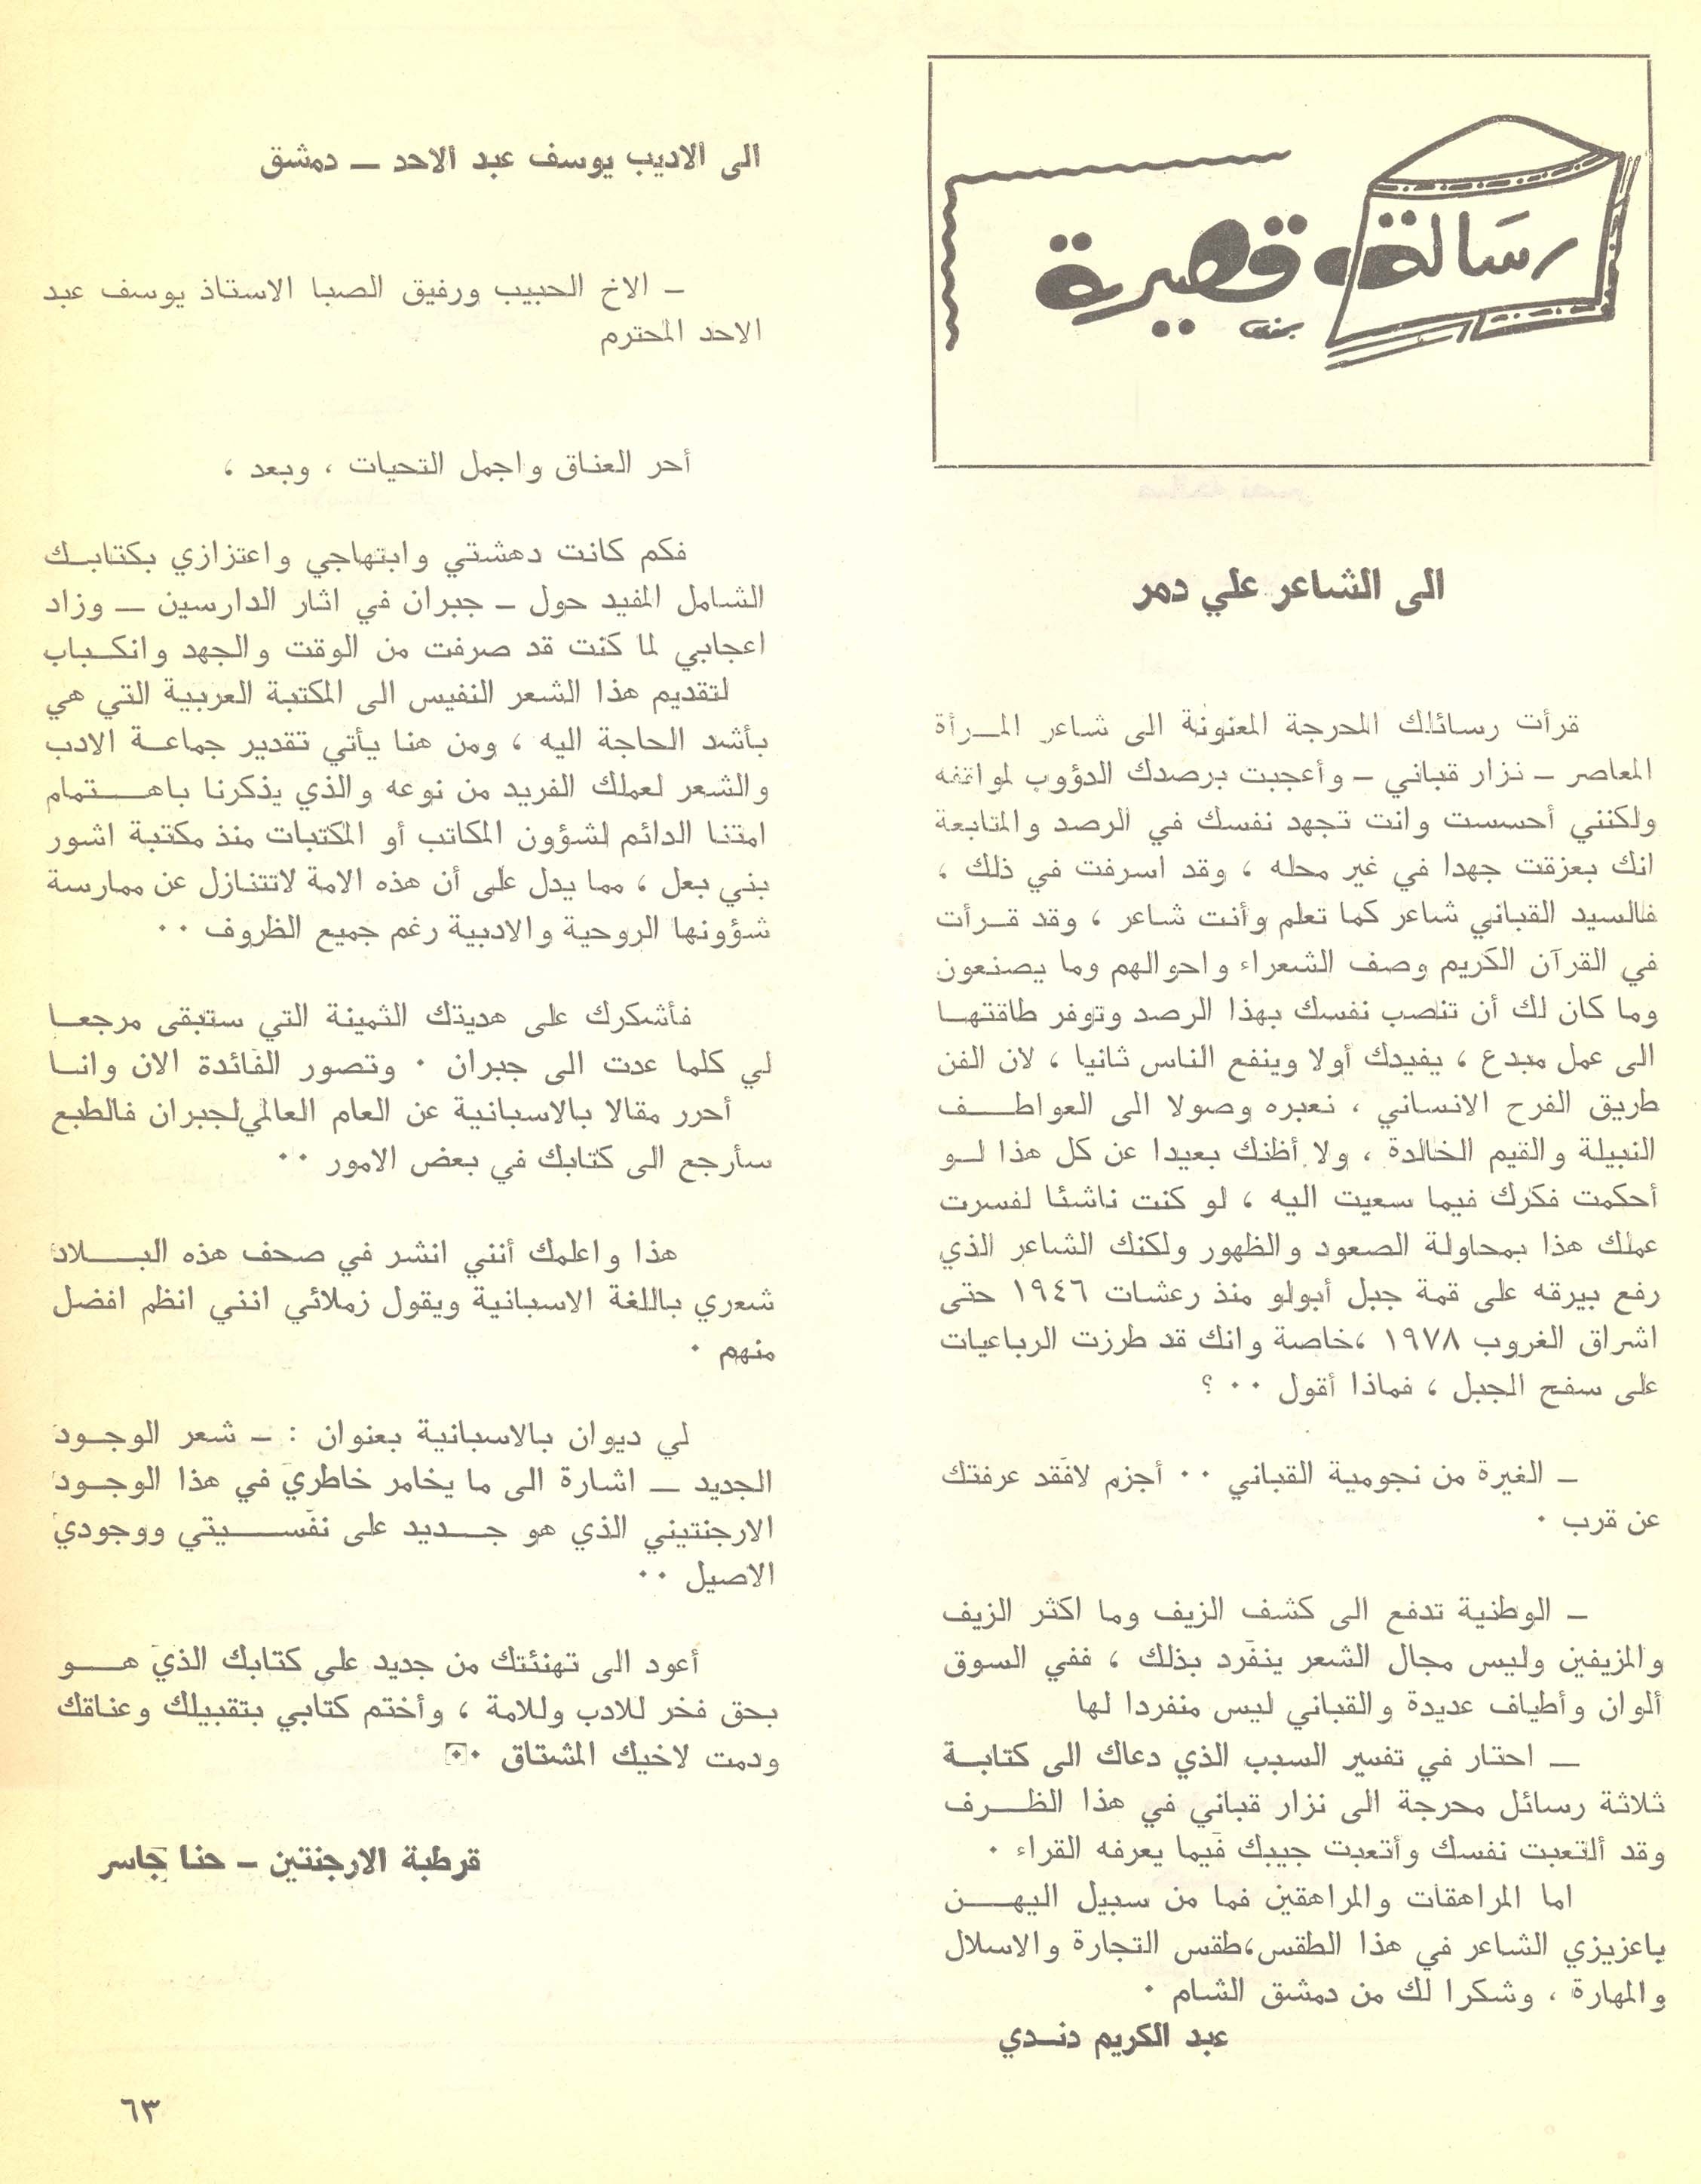 رسالة قصيرة
الى الشاعر علي دمر
قرأت رسائلك المحرجة المعنونة الى شاعر المــرأة
المعاصر – نزار قباني – وأعجبت برصدك الدؤوب لمواقفه
ولكنني أحسست وانت تجهد نفسك في الرصد والمتابعة
انك بعزقت جهدا في غير محله ، وقد اسرفت في ذلك ،
فالسيد القباني شاعر كما تعلم وأنت شاعر ، وقد قــرأت
في القرآن الكريم وصف الشعراء واحوالهم وما يصنعون
وما كان لك أن تنصب نفسك بهذا الرصد وتوفر طاقتهــا
الى عمل مبدع ، يفيدك أولا وينفع الناس ثانيا ، لان الفن
طريق الفرح الانساني ، نعبره وصولا الى العواطــف
النبيلة والقيم الخالدة ، ولا أظنك بعيدا عن كل هذا لــو
أحكمت فكرك فيما سعيت اليه ، لو كنت ناشئا لفسرت
عملك هذا بمحاولة الصعود والظهور ولكنك الشاعر الذي
رفع بيرقه على قمة جبل أبولو منذ رعشات ١٩٤٦ حتى
اشراق الغروب ١٩٧٨ ،خاصة وانك قد طرزت الرباعيات
على سفح الجبل ، فماذا أقول ٠٠ ؟
– الغيرة من نجومية القباني ٠٠ أجزم لافقد عرفتك
عن قرب ٠
– الوطنية تدفع الى كشف الزيف وما اكثر الزيف
والمزيفين وليس مجال الشعر ينفرد بذلك ، ففي السوق
ألوان وأطياف عديدة والقباني ليس منفردا لها
– احتار في تفسير السبب الذي دعاك الى كتابــة
ثلاثة رسائل محرجة الى نزار قباني في هذا الظــرف
وقد ألتعبت نفسك وأتعبت جيبك فيما يعرفه القراء ٠
اما المراهقات والمراهقين فما من سبيل اليهــن
ياعزيزي الشاعر في هذا الطقس،طقس التجارة والاسلال
والمهارة ، وشكرا لك من دمشق الشام ٠
عبد الكريم دنــدي
الى الاديب يوسف عبد الاحد – دمشق
– الاخ الحبيب ورفيق الصبا الاستاذ يوسف عبد
الاحد المحترم
أحر العناق واجمل التحيات ، وبعد ،
فكم كانت دهشتي وابتهاجي واعتزازي بكتابــك
الشامل المفيد حول – جبران في اثار الدارسين – وزاد
اعجابي لما كنت قد صرفت من الوقت والجهد وانكــباب
لتقديم هذا الشعر النفيس الى المكتبة العربية التي هي
بأشد الحاجة اليه ، ومن هنا يأتي تقدير جماعــة الادب
والشعر لعملك الفريد من نوعه والذي يذكرنا باهــتمام
امتنا الدائم لشؤون المكاتب أو المكتبات منذ مكتبة اشور
بني بعل ، مما يدل على أن هذه الامة لاتتنازل عن ممارسة
شؤونها الروحية والادبية رغم جميع الظروف ٠٠
فأشكرك على هديتك الثمينة التي ستبقى مرجعــا
لي كلما عدت الى جبران ٠ وتصور الفائدة الان وانــا
أحرر مقالا بالاسبانية عن العام العالمي لجبران فالطبع
سأرجع الى كتابك في بعض الامور ٠٠
هذا واعلمك أنني انشر في صحف هذه البــلاد
شعري باللغة الاسبانية ويقول زملائي انني انظم افضل
منهم ٠
لي ديوان بالاسبانية بعنوان : – شعر الوجــود
الجديد – اشارة الى ما يخامر خاطري في هذا الوجــود
الارجنتيني الذي هو جــديد على نفســيتي ووجودي
الاصيل ٠٠
أعود الى تهنئتك من جديد على كتابك الذي هــو
بحق فخر للادب وللامة ، وأختم كتابي بتقبيلك وعناقك
ودمت لاخيك المشتاق ٠٠
قرطبة الارجنتين – حنا جاسر
٦٣